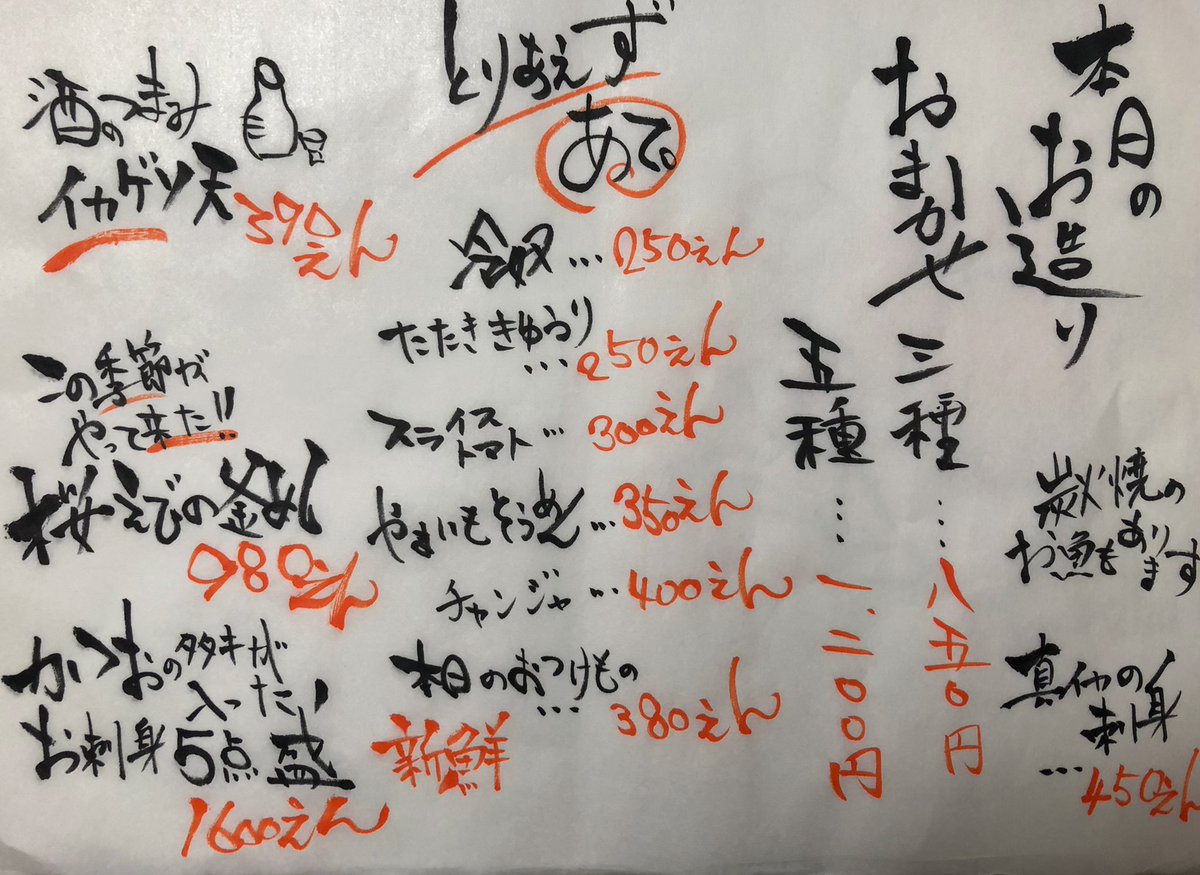 本日の
お造り
おまかせ
三種…八五〇円
五種…一.二〇〇円
炭火焼の
お魚も
あり
ます
真イカの
刺身
…450えん
とりあえず
あて。
冷奴…250えん
たたききゅうり
…250えん
スライス
トマト…300えん
やまいもそうめん…350えん
チャンジャ…400えん
本日のおつけもの
…380えん
新鮮
酒のつまみ
イカゲソ天
390えん
この季節が
やって来た!!
桜えびの釜めし
980えん
かつおのタタキが
入った!
お刺身5点盛
1600えん